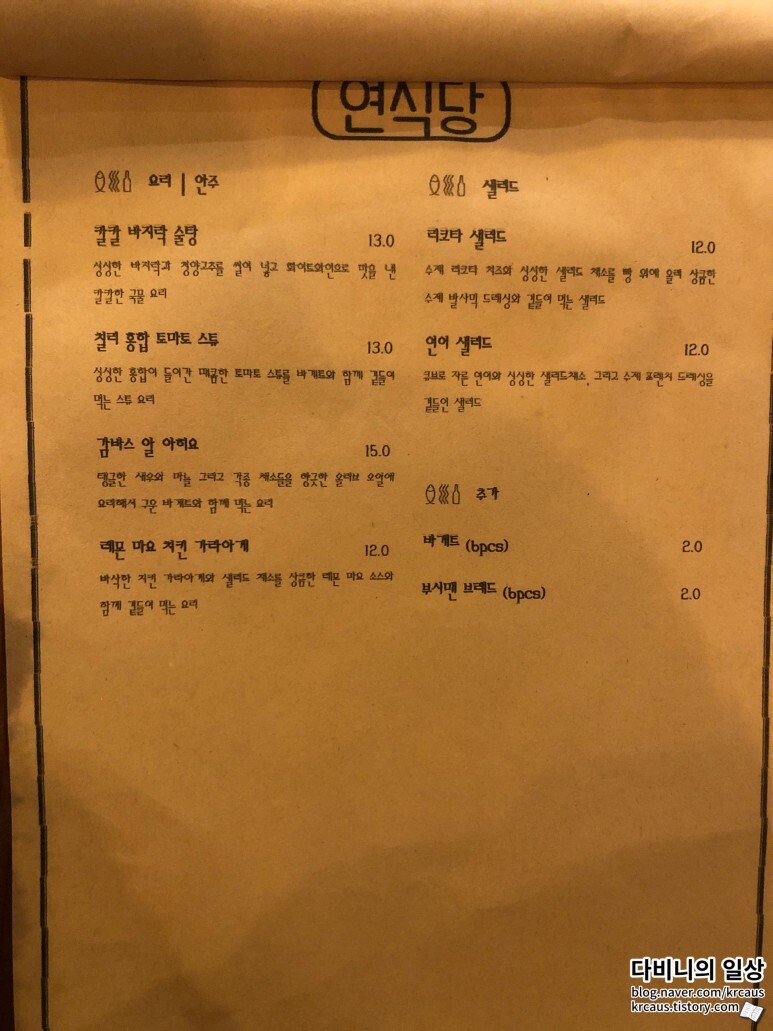 연식당
요리 | 안주
칼칼 바지락 술탕 13.0
싱싱한 바지락과 청양고추를 썰어 넣고 화이트와인으로 맛을 낸
칼칼한 국물 요리
칠리 홍합 토마토 스튜 13.0
싱싱한 홍합이 들어간 매콤한 토마토 스튜를 바게트와 함께 곁들여
먹는 스튜 요리
감바스 알 아히요 15.0
탱글한 새우와 마늘 그리고 각종 채소들을 향긋한 올리브 오일에
요리해서 구운 바게트와 함께 먹는 요리
레몬 마요 치킨 가라아게 12.0
바삭한 치킨 가라아게와 샐러드 채소를 상큼한 레몬 마요 소스와
함께 곁들여 먹는 요리
샐러드
리코타 샐러드 12.0
수제 리코타 치즈와 싱싱한 샐러드 채소를 빵 위에 올려 상큼한
수제 발사믹 드레싱와 곁들여 먹는 샐러드
연어 샐러드 12.0
큐브로 자른 연어와 싱싱한 샐러드채소, 그리고 수제 프렌치 드레싱을
곁들인 샐러드
추가
바게트 (6pcs) 2.0
부시맨 브레드 (6pcs) 2.0
다비니의 일상
blog.naver.com/krcaus
krcaus.tistory.com